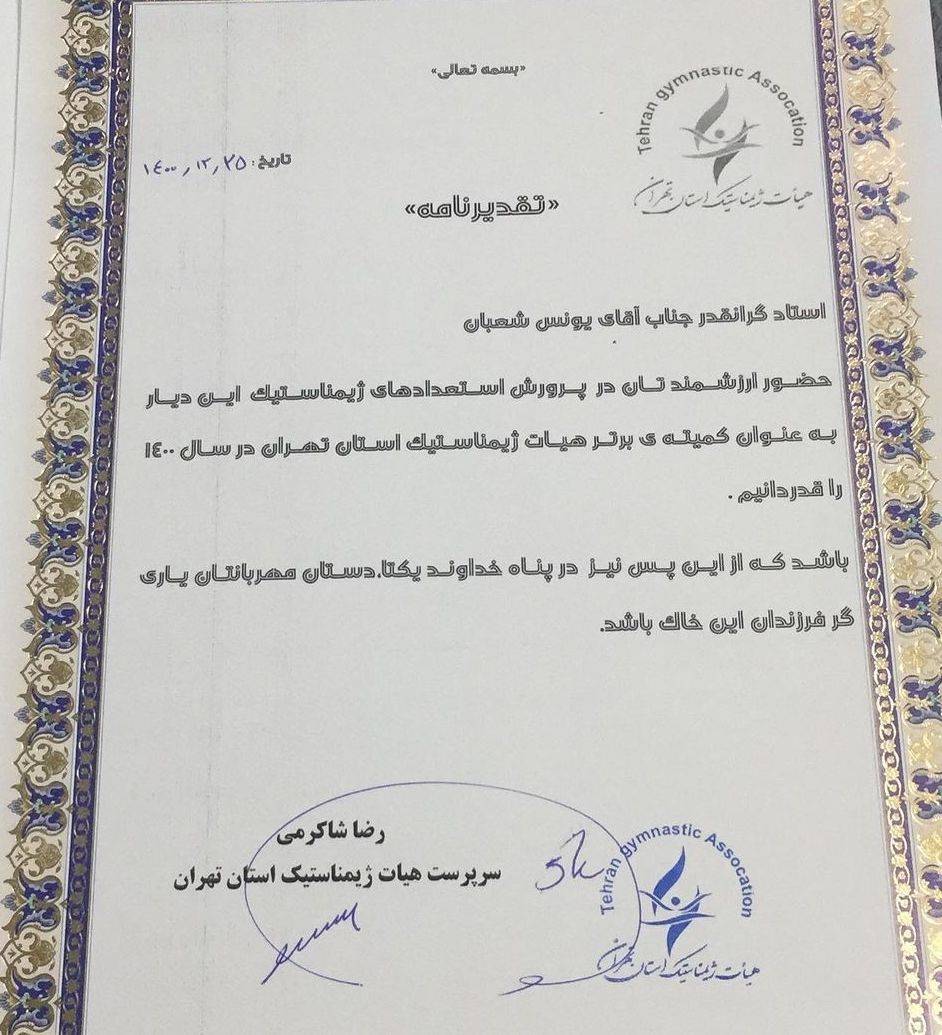 «بسمه تعالی»
Tehran gymnastic Assocation
هیأت ژیمناستیک استان تهران
تاریخ: ۱۴۰۰,۱۲,۲۵
«تقدیرنامه»
استاد گرانقدر جناب آقای یونس شعبان
حضور ارزشمند تان در پرورش استعدادهای ژیمناستیك این دیار
به عنوان کمیته ی برتر هیات ژیمناستیك استان تهران در سال ۱۴۰۰
را قدردانیم .
باشد که از این پس نیز در پناه خداوند یکتا،دستان مهربانتان یاری
گر فرزندان این خاك باشد.
رضا شاکرمی
سرپرست هیات ژیمناستیک استان تهران
Tehran gymnastic Assocation
هیأت ژیمناستیک استان تهران